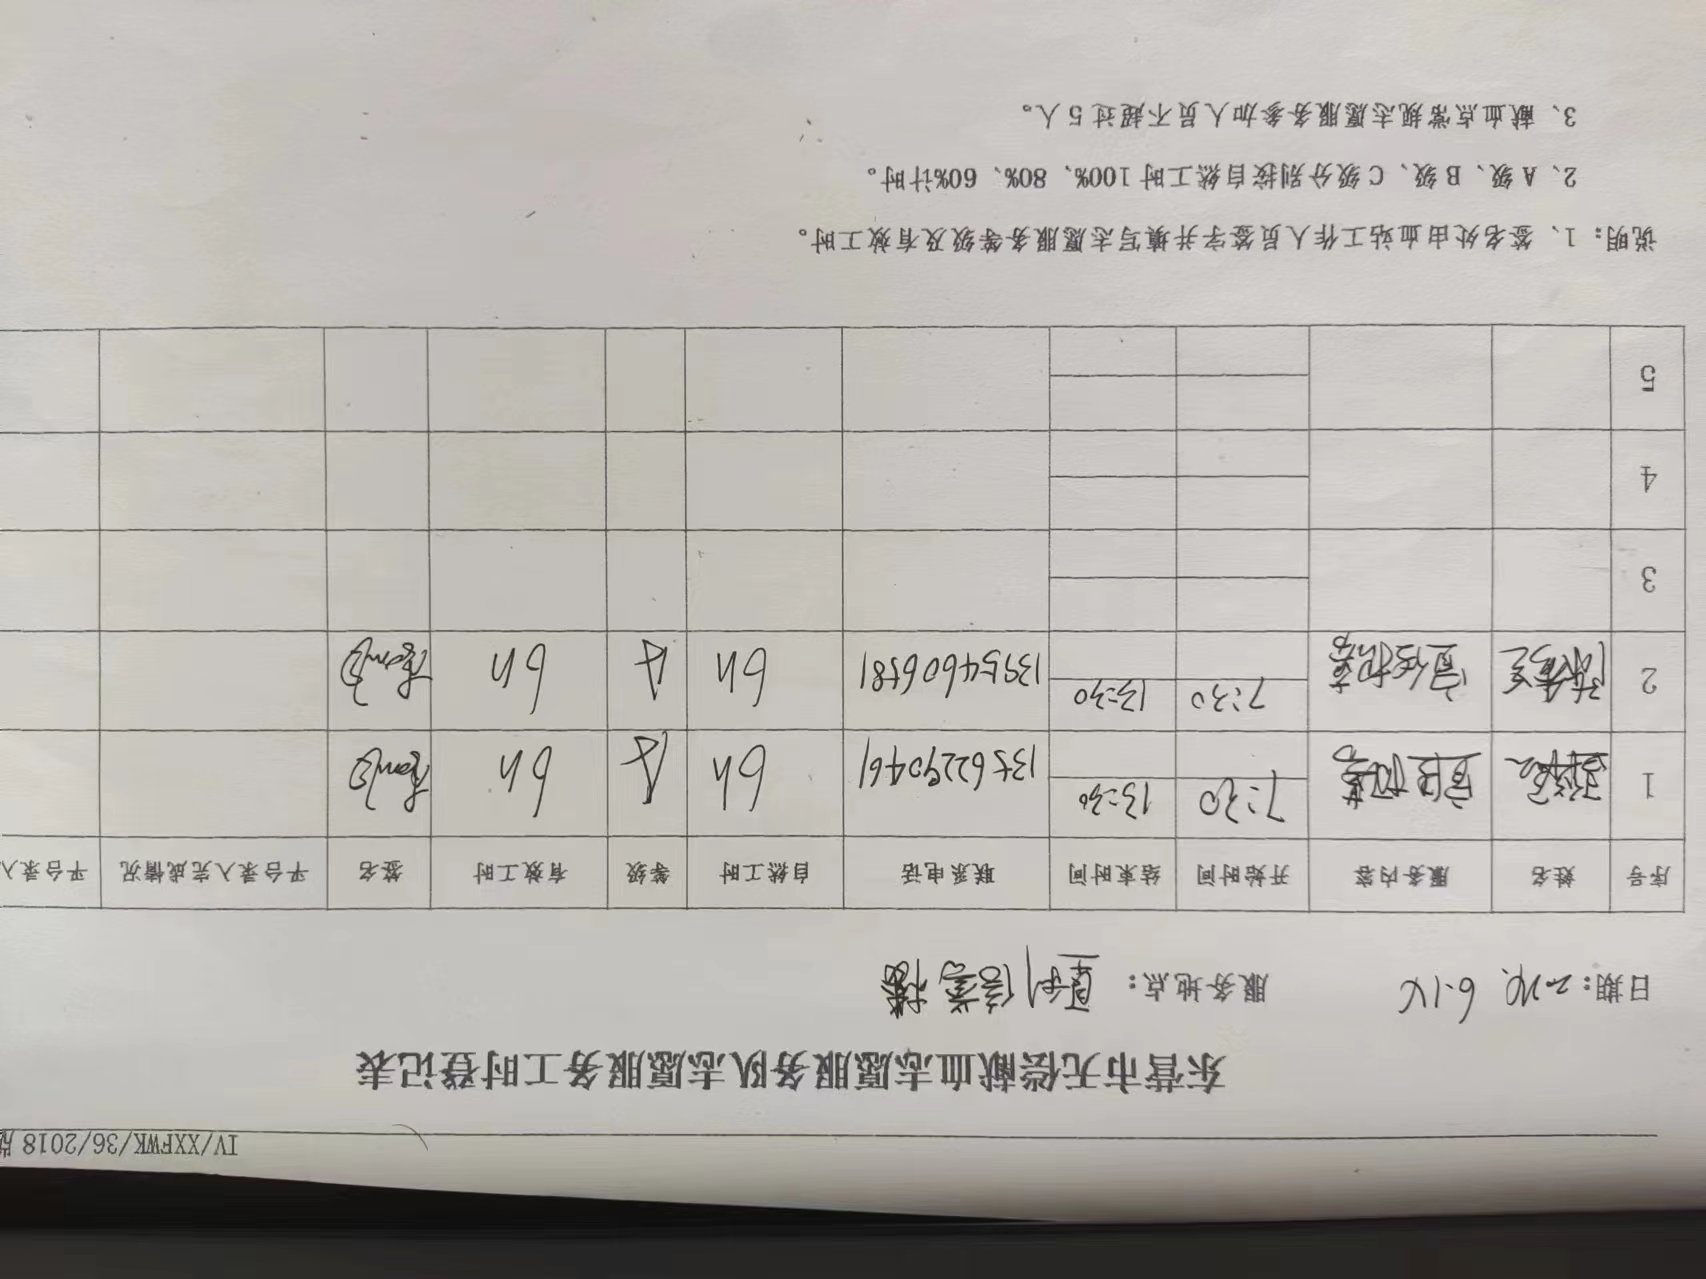 IV/XXFWK/36/2018
东营市无偿献血志愿服务队志愿服务工时登记表
日期： 服务地点：
序号 姓名 服务内容 开始时间 结束时间 联系电话 自然工时 等级 有效工时 签名 平台录入完成情况 平台录入
1 7:30 13:30 13562290461 6h A 6h
2 7:30 13:30 13954606581 6h A 6h
3
4
5
说明：1、签名处由血站工作人员签字并填写志愿服务等级及有效工时。
2、A级、B级、C级分别按自然工时100%、80%、60%计时。
3、献血点常规志愿服务参加人员不超过5人。